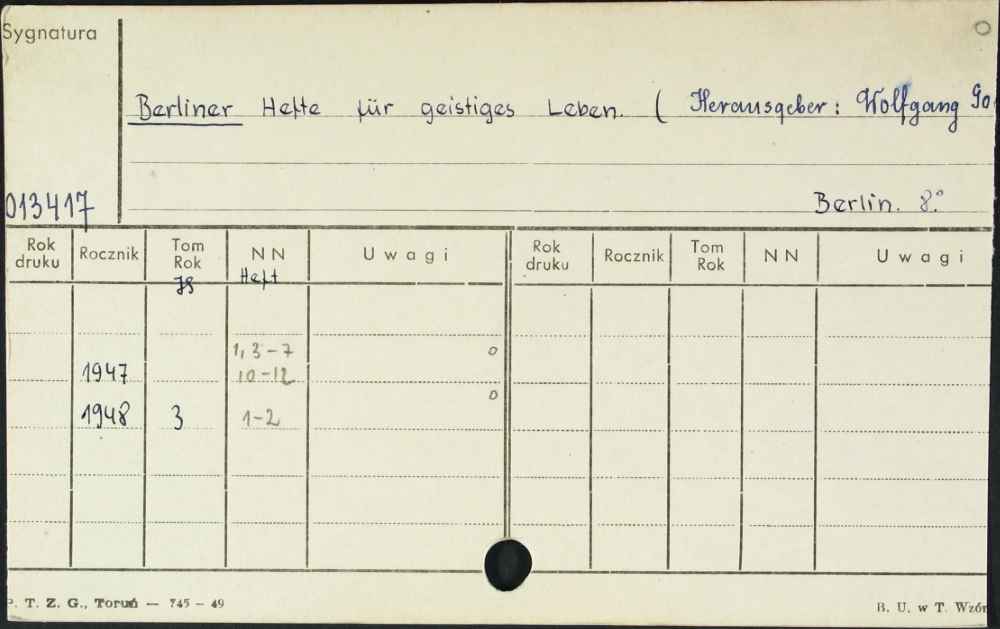 Sygnatura
Berliner Hefte für geistiges Leben. ( Herausgeber: Wolfgang Go
013417
Berlin. 8°
Rok druku Rocznik Tom Rok NN Uwagi Rok druku Rocznik Tom Rok NN Uwagi
Jg Heft
1, 3-7
1947 10-12
1948 3 1-2
P. T. Z. G., Toruń — 745 - 49 B. U. w T. Wzór